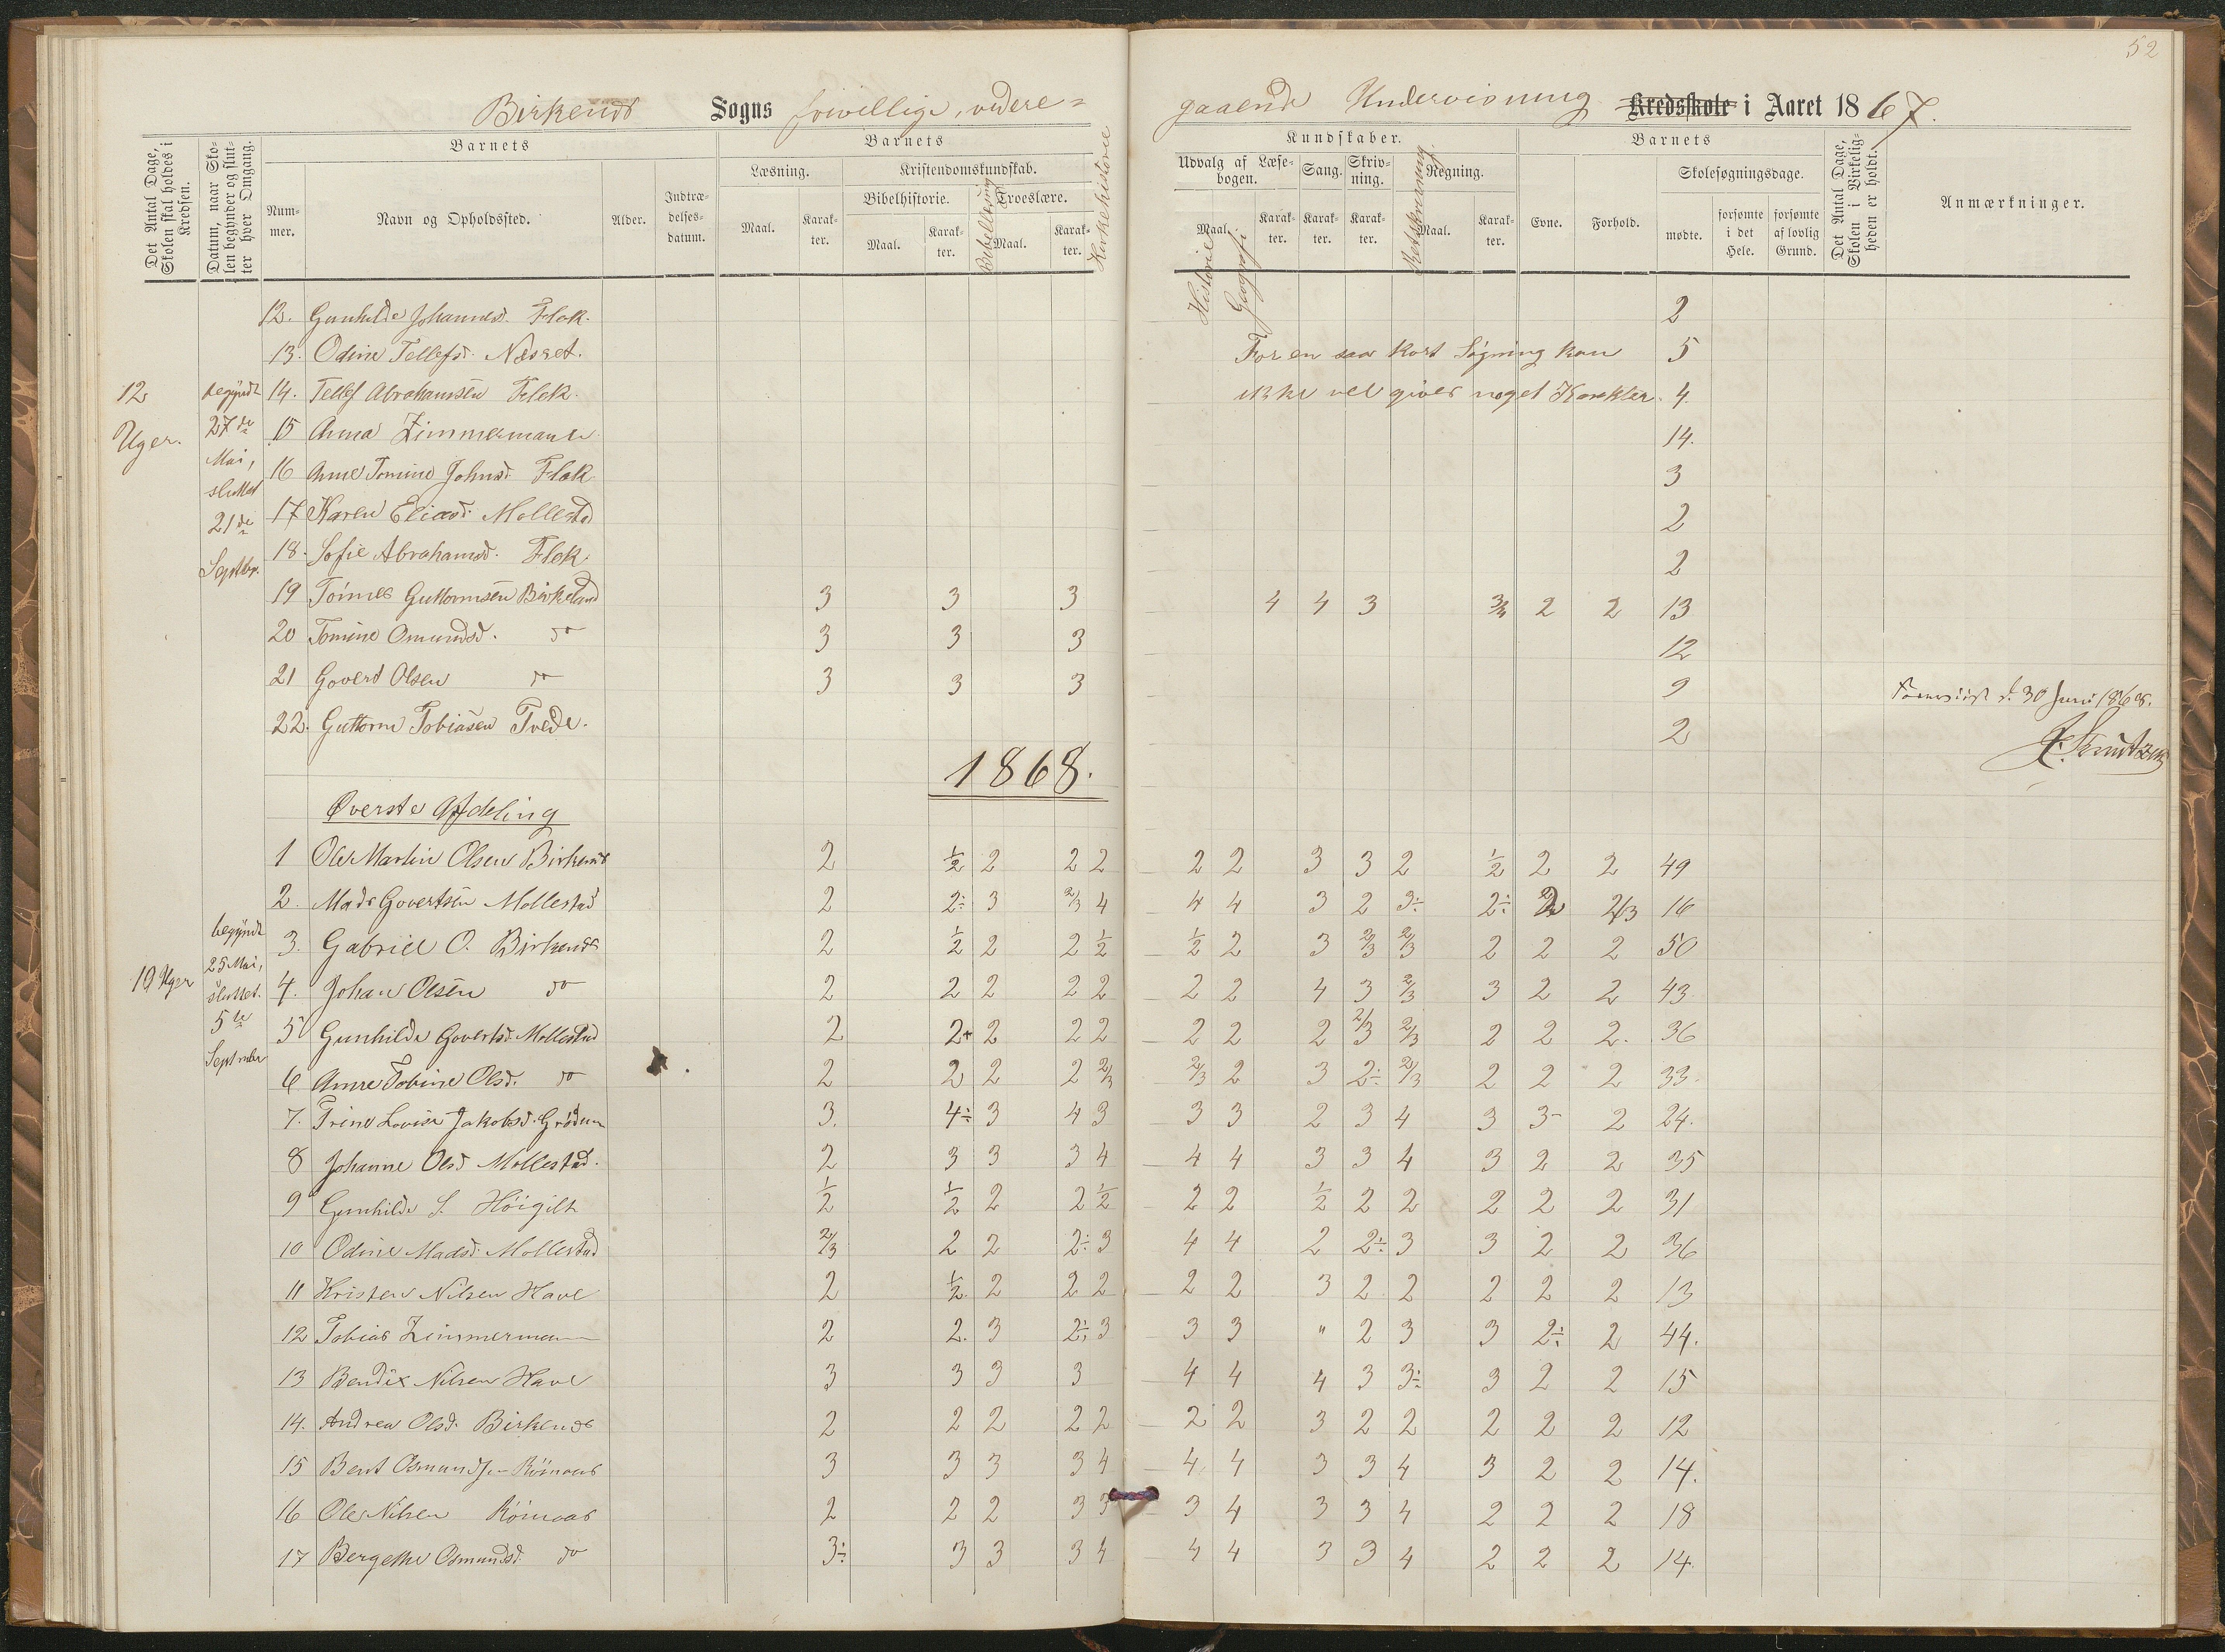 52
Birkenes Sogns frivillige, videre=
gaaende Undervisning Kredsskole i Aaret 1867.
Det Antal Dage, Skolen skal holdes i Kredsen.
Datum, naar Skolen begynder og slutter hver Omgang.
Barnets
Nummer.
Navn og Opholdssted.
Alder.
Indtrædelsesdatum.
Barnets
Læsning.
Maal.
Karakter.
Kristendomskundskab.
Bibelhistorie.
Maal.
Karakter.
Bibellæsning
Troeslære.
Maal.
Karakter.
Kirkehistorie
Kundskaber.
Udvalg af Læsebogen.
Maal.
Karakter.
Historie
Geografi
Sang.
Karakter.
Skrivning.
Karakter.
Retskrivning.
Regning.
Maal.
Karakter.
Barnets
Evne.
Forhold.
Skolesøgningsdage.
mødte.
forsømte i det Hele.
forsømte af lovlig Grund.
Det Antal Dage, Skolen i Virkeligheden er holdt.
Anmærkninger.
12 Uger.
begyndt 27de Mai, sluttet 21de Septbr.
12. Gunhilde Johannesd. Flak. 2
13. Odine Tellefsd. Næsset. For en saa kort Søgning kan 5
14. Tellef Abrahamsen Flak. ikke vel gives noget Karakter. 4
15 Anna Zimmermann 14.
16 Anne Tomine Johnsd. Flak 3
17 Karen Eliasd. Mollestad 2
18. Sofie Abrahamsd. Flak. 2
19 Tønnes Guttormsen Birkeland 3 3 3 4 4 3 3/4 2 2 13
20 Tomine Omundsd. do 3 3 3 12
21 Govert Olsen do 3 3 3 9
d. 30 Juni 1868.
22. Guttorm Tobiasen Tvede. 2
Knutzen
1868.
Øverste Afdeling
10 Uger
begyndt 25 Mai, sluttet. 5te September
1 Ole Martin Olsen Birkenes 2 1/2 2 2 2 2 2 3 3 2 1/2 2 2 49
2. Mads Govertsen Mollestad 2 2÷ 3 2/3 4 4 4 3 2 3÷ 2÷ 2 2/3 16
3. Gabriel O. Birkenes 2 1/2 2 2 1/2 1/2 2 3 2/3 2/3 2 2 2 50
4. Johan Olsen do 2 2 2 2 2 2 2 4 3 2/3 3 2 2 43
5 Gunhilde Govertsd. Mollestad 2 2+ 2 2 2 2 2 2 2/3 2/3 2 2 2. 36
6 Anne Tobine Olsd. do 2 2 2 2 2/3 2/3 2 3 2÷ 2/3 2 2 2 33.
7. Trine Lovise Jakobsd. Grødum 3. 4÷ 3 4 3 3 3 2 3 4 3 3- 2 24.
8 Johanne Olsd Mollestad. 2 3 3 3 4 4 4 3 3 4 3 2 2 35
9 Gunhilde S. Høigilt 1/2 1/2 2 2 1/2 2 2 1/2 2 2 2 2 2 31
10 Odine Madsd. Mollestad 2/3 2 2 2÷ 3 4 4 2 2÷ 3 3 2 2 36
11 Kristen Nilsen Have 2 1/2. 2 2 2 2 2 3 2 2 2 2 2 13
12 Tobias Zimmermann 2 2. 3 2÷ 3 3 3 " 2 3 3 2÷ 2 44.
13 Bendix Nilsen Have 3 3 3 3 4 4 4 3 3÷ 3 2 2 15
14. Andrea Olsd. Birkenes 2 2 2 2 2 2 2 3 2 2 2 2 2 12
15 Bent Osmundsen Rømaas 3 3 3 3 4 4 4 3 3 4 3 2 2 14.
16 Ole Nilsen Rømaas 2 2 2 3 3 3 4 3 3 4 2 2 2 18
17 Bergethe Osmundsd. do 3÷ 3 3 3 4 4 4 3 3 4 2 2 2 14.